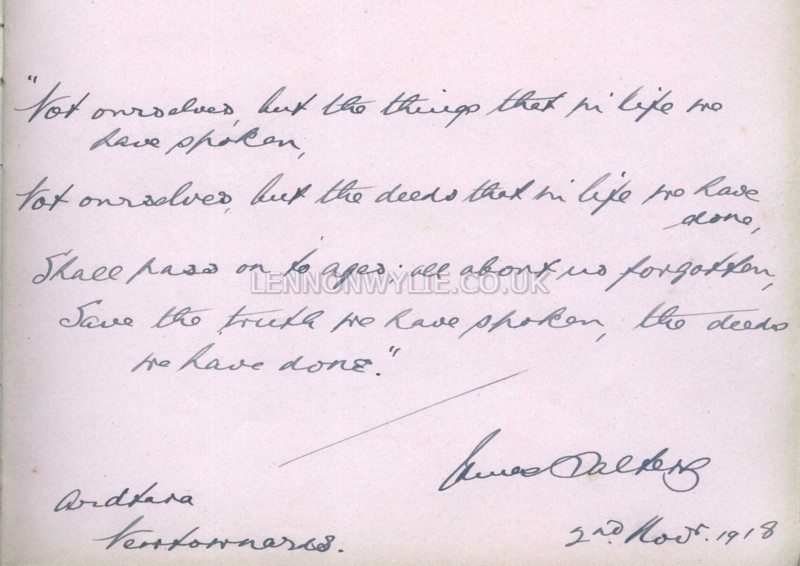 "Not ourselves, but the things that in life we
have spoken,
Not ourselves, but the deeds that in life we have
done,
Shall pass on to ages; all about us forgotten,
LENNONWYLIE.CO.UK
Save the truth we have spoken, the deeds
we have done."
James
Ardtara
Newtownards.
2nd Novr. 1918